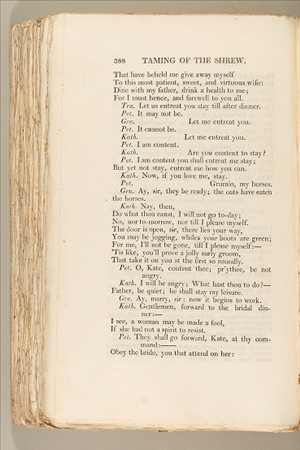 388 TAMING OF THE SHREW.
That have beheld me give away myself
To this most patient, sweet, and virtuous wife:
Dine with my father, drink a health to me;
For I must hence, and farewell to you all.
Tra. Let us entreat you stay till after dinner.
Pet. It may not be.
Gre. Let me entreat you.
Pet. It cannot be.
Kath. Let me entreat you.
Pet. I am content.
Kath. Are you content to stay?
Pet. I am content you shall entreat me stay;
But yet not stay, entreat me how you can.
Kath. Now, if you love me, stay.
Pet. Grumio, my horses.
Gru. Ay, sir, they be ready; the oats have eaten
the horses.
Kath. Nay, then,
Do what thou canst, I will not go to-day;
No, nor to-morrow, nor till I please myself.
The door is open, sir, there lies your way,
You may be jogging, whiles your boots are green;
For me, I'll not be gone, till I please myself:—
'Tis like, you'll prove a jolly surly groom,
That take it on you at the first so roundly.
Pet. O, Kate, content thee; pr'ythee, be not
angry.
Kath. I will be angry; What hast thou to do?—
Father, be quiet; he shall stay my leisure.
Gre. Ay, marry, sir: now it begins to work.
Kath. Gentlemen, forward to the bridal din-
ner:—
I see, a woman may be made a fool,
If she had not a spirit to resist.
Pet. They shall go forward, Kate, at thy com-
mand:——
Obey the bride, you that attend on her: